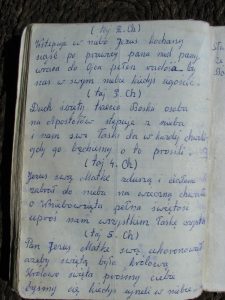 (taj 2. Ch)
Wstępuje w niebo Jezus kochany
siąść po prawicy pana nad pany
wraca do Ojca pełen wesela by
nas w swym niebie kiedyś ugościł
(taj 3. Ch)
Duch święty trzecia Boska osoba
na Apostołów stępuje z nieba
i nam swe Łaski da w każdej chwili
gdy go będziemy o to prosili
(taj 4. Ch)
Jezus swą Matkę z duszą i ciałem
zabrał do nieba na wieczną chwałę
o Wniebowzięta pełna świętości
uproś nam wszystkim Łaskę
(taj 5. Ch)
Pan Jezus Matkę swą ukoronował
ażeby świętą była królową
Królowo święta prosimy ciebie
byśmy cię kiedyś ujrzeli w niebie